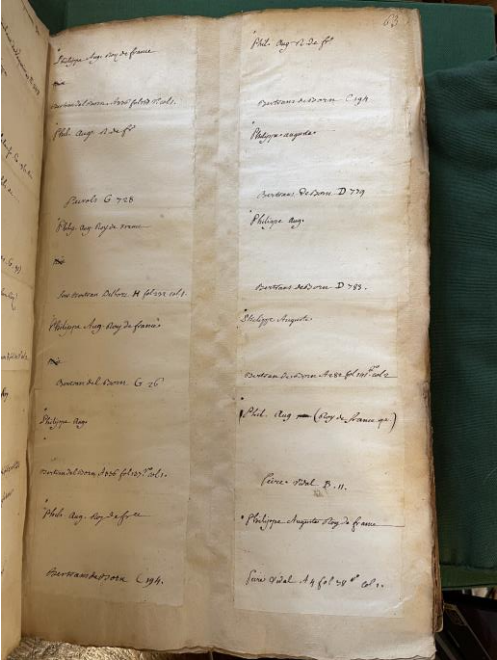 63
Philippe Aug. Roy de france
Bertran del Born. A336 fol
Phil. Aug. R de frs
G 728
Philip. Aug. Roy de france
Bertran Delborn. H fol 232 col 1.
Philippe Aug. Roy de france
Bertran del Born. G 26
Philippe Aug.
Bertran del Born A336 fol 137 col 1.
Phil. Aug. Roy de
Bertrans de Born C 194.
Phil. Aug. R. De frs
Bertrans de Born. C 194
Philippe auguste
Bertrans de Born D 779
Philippe Aug.
Bertrans de Born D 783.
Philippe Auguste
Bertran de Born A 282 fol col 2
Phil. Aug (Roy de france
Peire Vidal B. 11.
Philippe Auguste Roy de france
Peire Vidal A 4 fol 38 col 1.